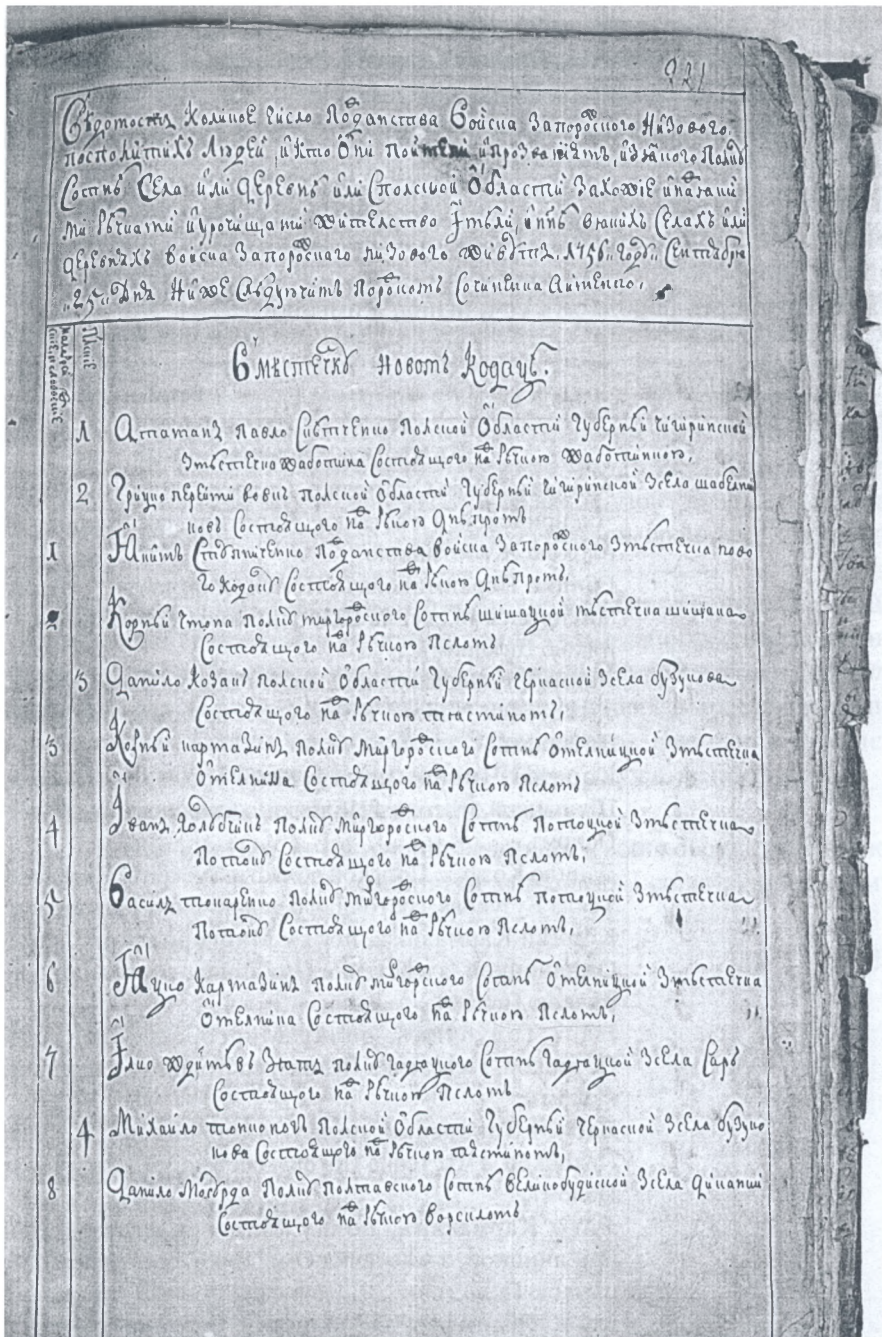 221
Вѣдомость Коликое число Подданства Войска Запорожского Низового
посполитихъ Людей, и кто они поименно и прозваніемъ, изъ якого Полку
Сотнѣ Села или деревнѣ или С полской Области Захожіе и надъ якими
ми рѣчками и урочищами жителство Имѣли, и нинѣ в якихъ Селахъ или
деревняхъ Войска Запорожскаго низового живутъ, 1756 году Сентября
25 Дня Ниже Слѣдуючимъ Порядкомъ Сочиненна Именно,
В мѣстечку Новомъ Кодацѣ.
1 Атаманъ Павло Полской Области Губерніи чигиринской
Змѣстечка жаботина Состоящого на рѣчкою жаботинкою,
2 Грицко Полской Области Губерніи чигиринской Зсела
ковъ Состоящого на рѣкою днѣпромъ
1 Якимъ Подданства войска Запорожского Змѣстечка ново
го Кодаку Состоящого на рѣкою Днѣпромъ,
2 Корнѣй чтопа полку миргородского Сотнѣ шишацкой мѣстечка шишака
Состоящого на рѣчкою Псломъ
3 Данило Козакъ полской Области Губерніи черкаской Зсела бузукова
Состоящого на рѣчкою
3 Корнѣй картазинъ полку миргородского Сотнѣ Омелницкой Змѣстечка
Омелника Состоящого на рѣчкою Псломъ
4 Іванъ полку миргородского Сотнѣ Потоцкой Змѣстечка
Потоку Состоящого на рѣчкою Псломъ,
5 Василь токаренко полку миргородского Сотнѣ потоцкой Змѣстечка
Потоку Состоящого на рѣчкою Псломъ,
6 Яцко Картазинъ полку миргородского Сотнѣ Омелницкой Змѣстечка
Омелника Состоящого на рѣчкою Псломъ,
7 полку гадяцкого Сотнѣ гадяцкой Зсела Саръ
Состоящого на рѣчкою Псломъ
4 Михайло Полской Области Губерніи черкаской Зсела бузуко
кова Состоящого на рѣчкою тясминомъ,
8 Данило Полку Полтавского Сотнѣ великобудиской Зсела диканки
Состоящого на рѣчкою ворскломъ